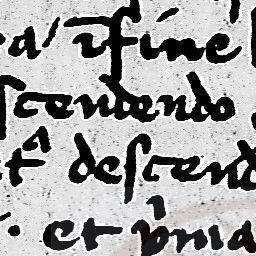 a/ īfine
scendendo
tᵃ descend
et pͥma